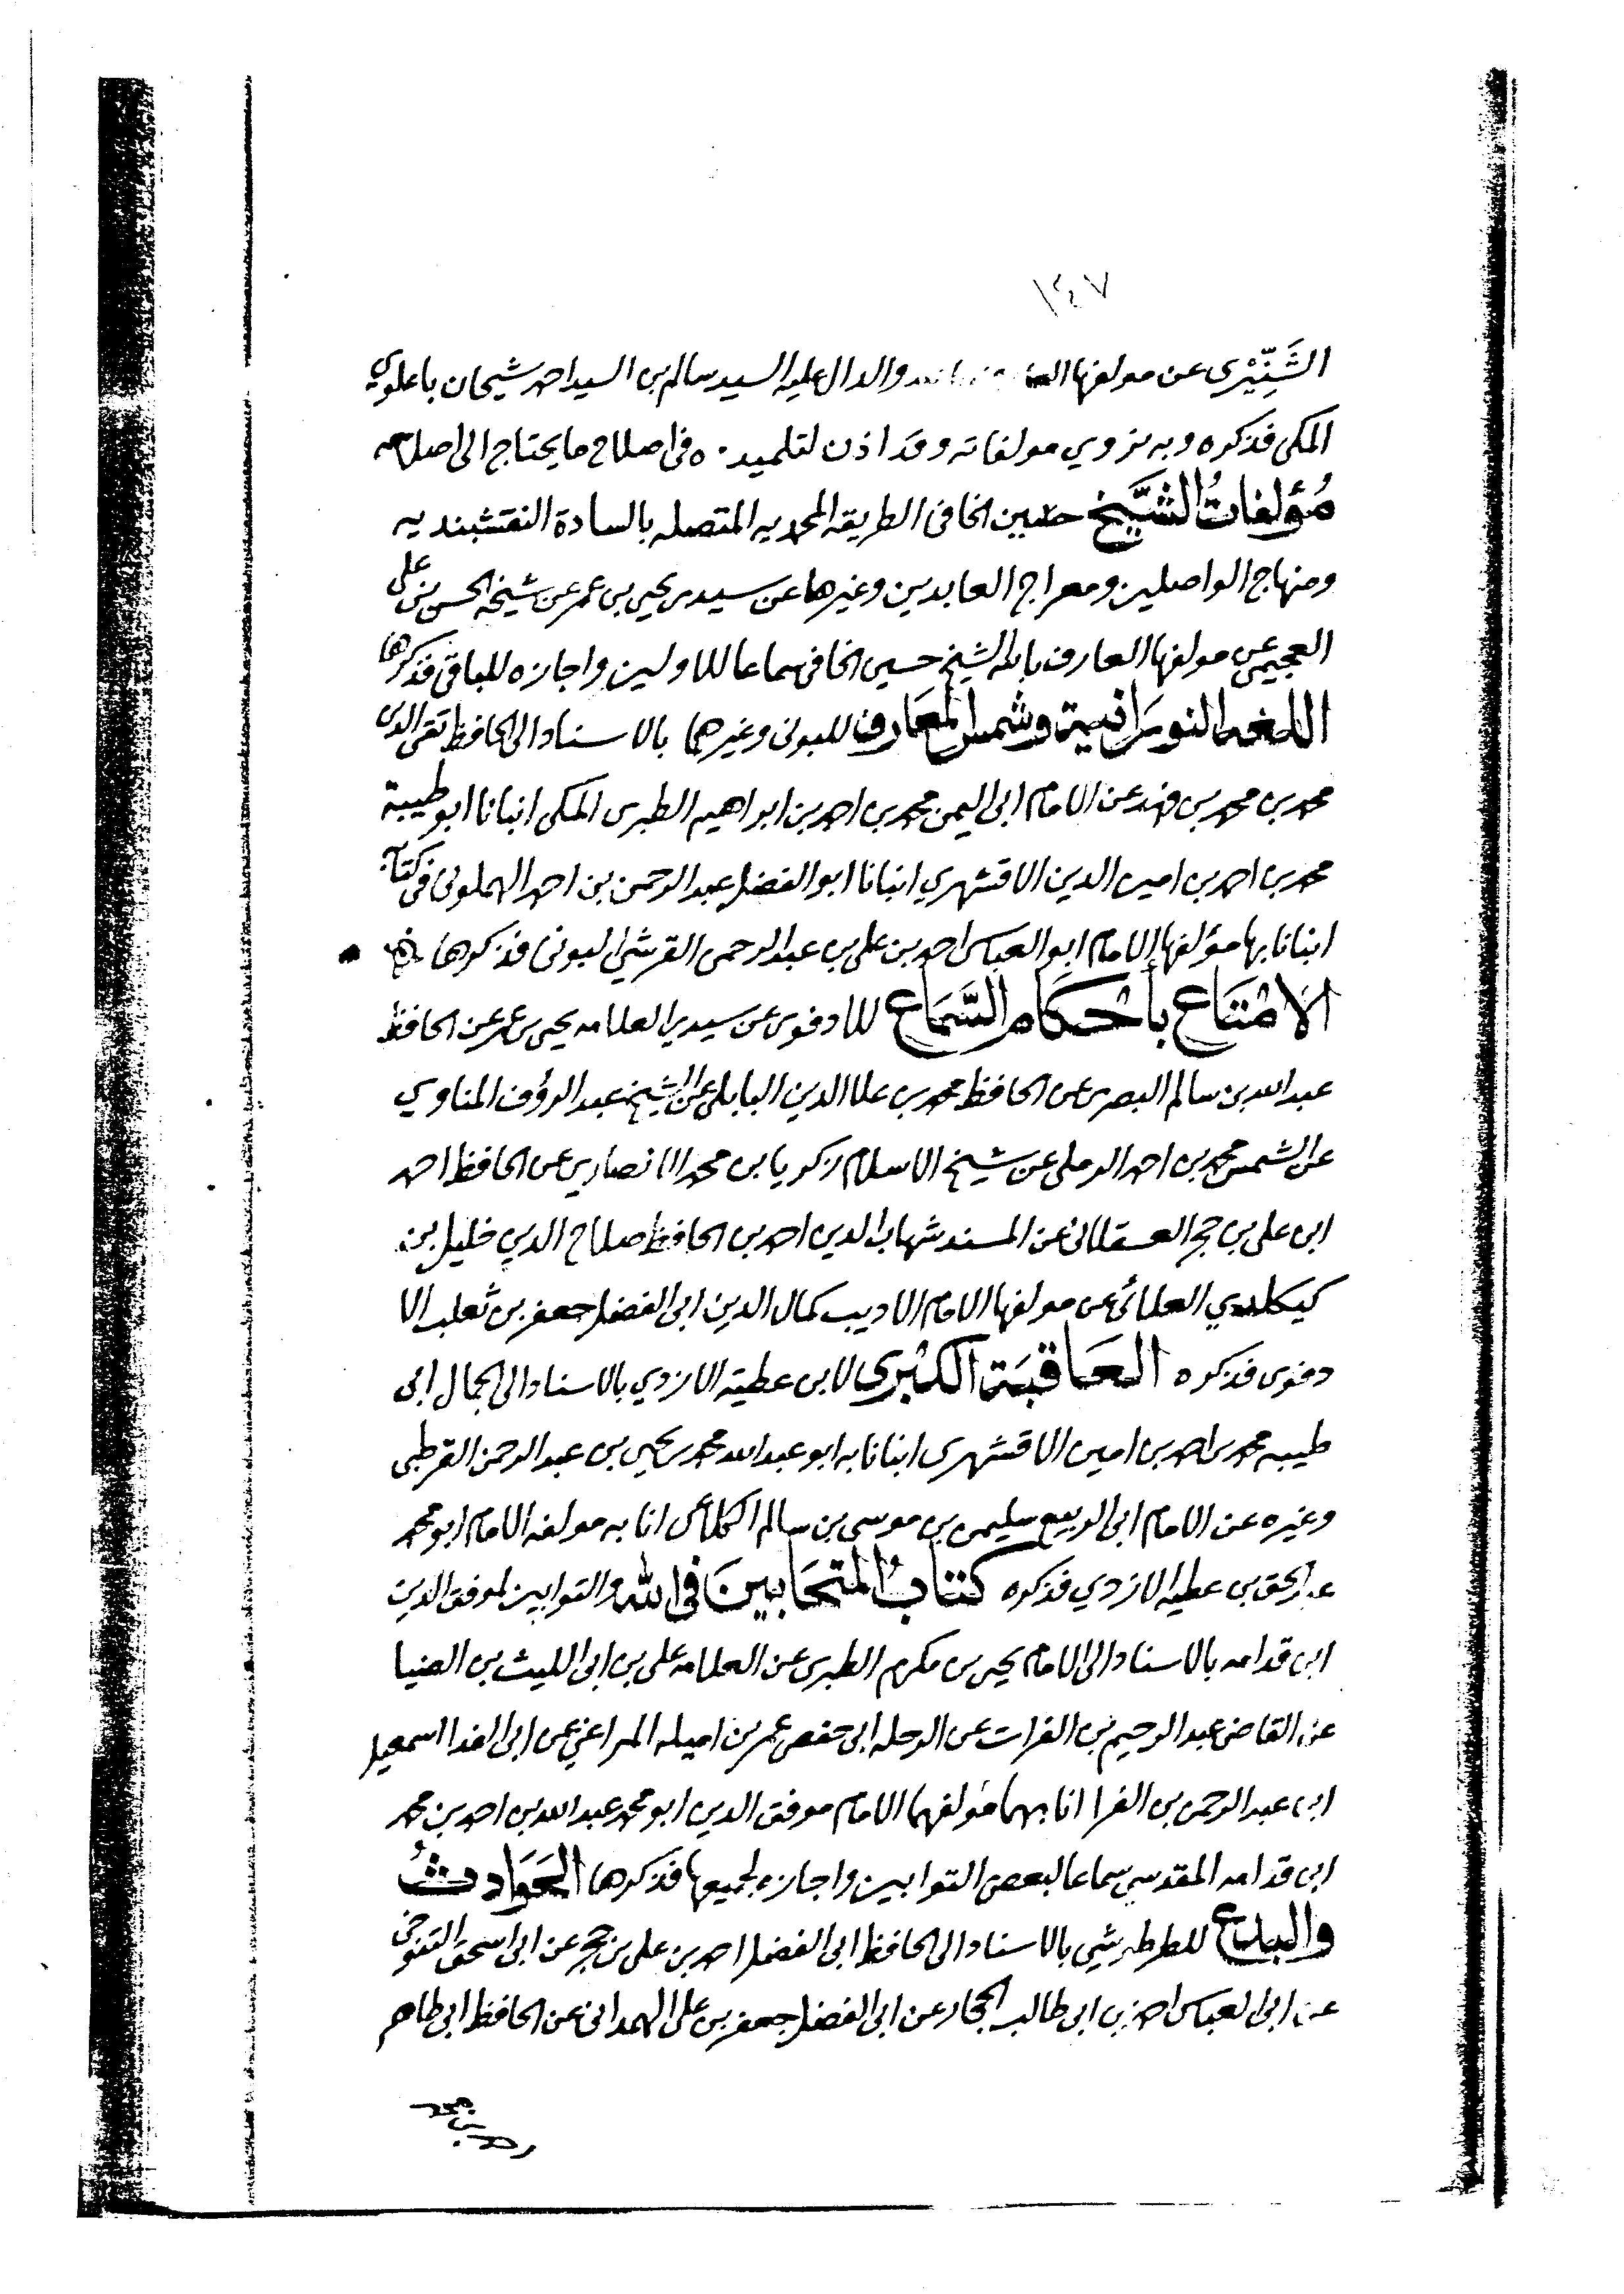 ١٤٧
الشَنِّيْرى عن مولفها والدال عليه السيد سالم بن السيد احمد شيحان باعلوي
المكى فذكره وبه نروي مولفاته وقد اذن لتلميذه فى اصلاح ما يحتاج الى اصلاحه
مُؤلفاتُ الشَّيخ حسين الخافى الطريقه المحمديه المتصله بالسادة النقشبنديه
ومنهاج الواصلين ومعراج العابدين وغيرها عن سيدى يحيى بن عمر عن شيخه الحسن بن على
العجيمى عن مولفها العارف بالله الشيخ حسين الخافى سماعا للاولين واجازه للباقى فذكرها
اللمعه النورانية وشمس المعَارف للبونى وغيرهما بالاسناد الى الحافظ تقى الدى
محمد بن محمد بن فهد عن الامام ابى اليمن محمد بن احمد بن ابراهيم الطبرى المكى انبانا ابو طيبة
محمد بن احمد بن امين الدين الاقشهري انبانا ابو الفضل عبد الرحمن بن احمد فى كتابه
انبانا بها مؤلفها الامام ابو العباس احمد بن على بن عبد الرحمن القرشى البونى فذكرها
الامْتَاع بأحْكَام السَّمَاع للادفوى عن سيدي العلامه يحيى بن عمر عن الحافظ
عبد الله بن سالم البصرى عن الحافظ محمد بن علا الدين البابلى عن الشيخ عبد الرؤف المناوي
عن الشمس محمد بن احمد الرملى عن شيخ الاسلام زكريا بن محمد الانصاري عن الحافظ احمد
ابن على بن حجر العسقلانى عن المسند شهاب الدين احمد بن الحافظ صلاح الدين خليل بن
كيكلدي العلائى عن مولفها الامام الاديب كمال الدين ابى الفضل جعفر بن ثعلب الا
دفوى فذكره العَاقبَة الكبْرى لابن عطية الازدي بالاسناد الى الجمال ابى
طيبه محمد بن احمد بن امين الاقشهرى انبانا به ابو عبد الله محمد بن يحيى بن عبد الرحمن القرطبى
وغيره عن الامام ابى الربيع سليمن بن موسى بن سالم الكلاعى انا به مولفه الامام ابو محمد
عبد الحق بن عطيه الازدي فذكره كتابُ المتحَابينَ فى الله والتوابين لموفق الدين
ابن قدامه بالاسناد الى الامام يحيى بن مكرم الطبرى عن العلامه على بن ابى الليث بن الضيا
عن القاضى عبد الرحيم بن الفرات عن الرحله ابى حفص عمر بن اميله المراغى عن ابى الفدا اسمعيل
ابن عبد الرحمن بن الفرا انا بهما مؤلفهما الامام موفق الدين ابو محمد عبد الله بن احمد بن محمد
ابن قدامه المقدسي سماعا لبعض التوابين واجازه لجميعها فذكرها الحَوَادثُ
والبدع للطرطوشي بالاسناد الى الحافظ ابى الفضل احمد بن على بن حجر عن ابى اسحق التنوخى
عن ابى العباس احمد بن ابى طالب الحجار عن ابى الفضل جعفر بن على الهمدانى عن الحافظ ابى طاهر